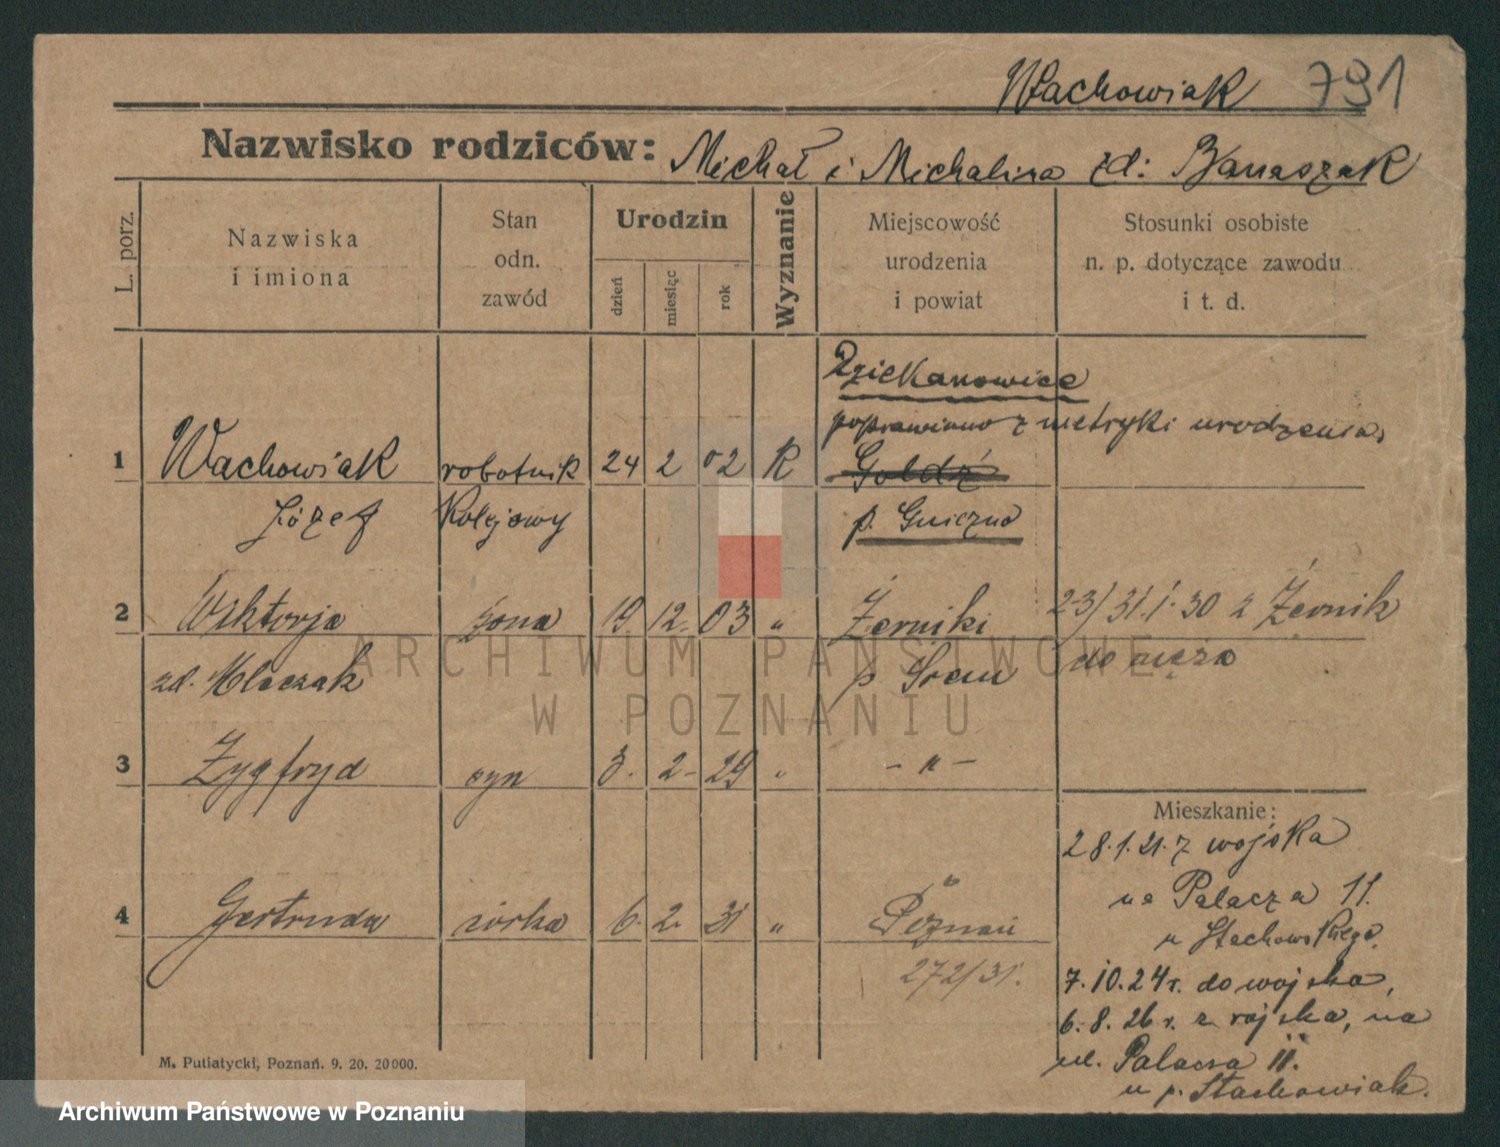 Wachowiak 791
Nazwisko rodziców: Michał i Michalina zd: Banaszak
L. porz.
Nazwiska
i imiona
Stan
odn.
zawód
Urodzin
dzień
miesiąc
rok
Wyznanie
Miejscowość
urodzenia
i powiat
Stosunki osobiste
n. p. dotyczące zawodu
i t. d.
Dziekanowice
poprawiono z metryki urodzenia,
1 Wachowiak robotnik 24 2 02 K Goldź
Józef Kolejowy p. Gniezno
2 Wiktorja żona 19. 12. 03 " Żerniki 2-3/31.1.30 z Żernik
zd. Mleczak p Śrem do męża
3 Zygfryd syn 3. 2- 29 " - " -
Mieszkanie:
28.1.21. z wojska
na Palacza 11.
4 Gertruda córka 6. 2. 31 " Poznań
u Stachowskiego.
272/31.
7.10.24r. do wojska,
6.8.26 r. z wojska, na
ul. Palacza 11.
u p. Stachowiak.
M. Putiatycki, Poznań. 9. 20. 20000.
ARCHIWUM PAŃSTWOWE
W POZNANIU
Archiwum Państwowe w Poznaniu